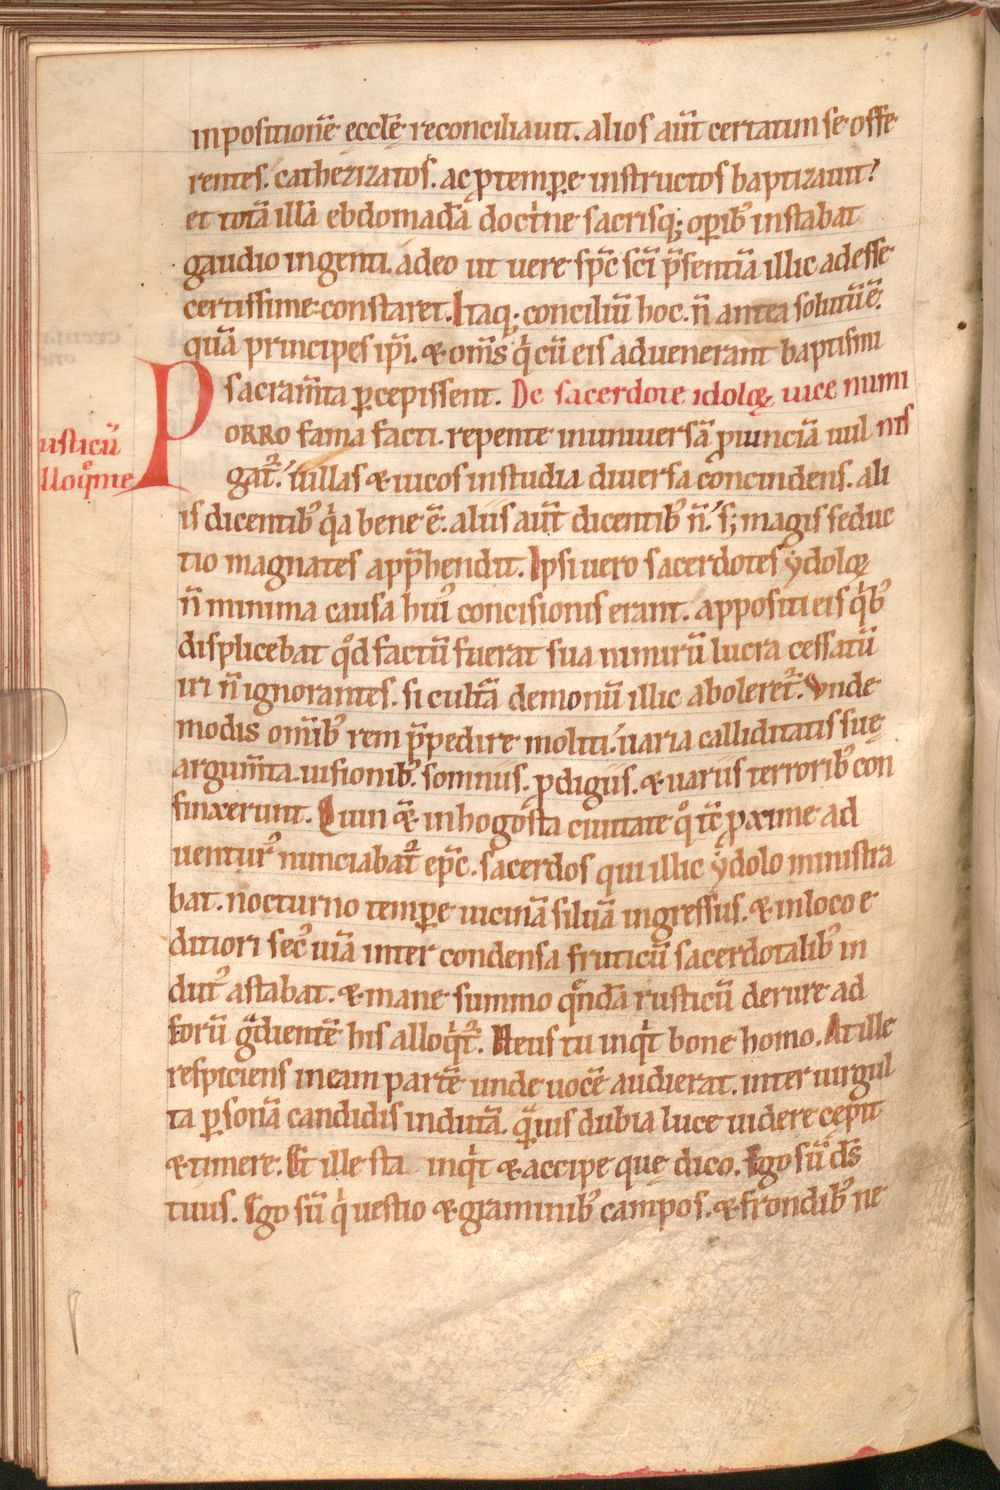 inpositionē eccłē reconciliauit. alios aut̄ certatim se offe
rentes. catherizatos. ac ꝓtemꝑe instructos baptizauit.
et totā illā ebdomadā doct'ne sacrisq; oꝑib; instabat
gaudio ingenti. adeo ut uere sp̄c sc̄i p̄sentiā illic adesse
certissime constaret. Itaq; conciliū hoc. n̄ antea solutū ē.
quā principes ip̄i. & om̄s q'cū eis aduenerant baptismi
sacram̄ta ꝑcepissent. De sacerdote idoloꝝ uice numi
PORRO fama facti. repente inuniuersā ꝓuinciā uul nis
gat᷑. uillas & uicos instudia diuersa concindens. ali
is dicentib; q'a bene ē. aliis aut̄ dicentib; n̄. s; magis seduc
tio magnates app̄hendit. Ipsi uero sacerdotes ẏdoloꝝ
n̄ minima causa hui᷒ concisionis erant. appositi eis q'b;
displicebat qd̊ factū fuerat sua nimirū lucra cessatū
iri n̄ ignorantes. si cult̄a demonū illic aboleret᷑. Vnde
modis om̄ib; rem p̄pedire moliti. uaria calliditatis suę
argum̄ta. uisionib;. somniis. ꝓdigiis. & uariis terrorib; con
finxerunt. Quin &̄ inhogosta ciuitate q° t̄c ꝓxime ad
uentur᷒ nunciabat᷑ ep̄c. sacerdos qui illic ẏdolo ministra
bat. nocturno temꝑe uicinā siluā ingressus. & inloco e
ditiori sec᷒ uiā inter condensa fruticū sacerdotalib; in
dut᷒ astabat. & mane summo qͣndā rusticū derure ad
forū gͣdientē his alloq't᷑. Heus tu inq't bone homo. At ille
respiciens ineam partē unde uocē audierat. inter uirgul
ta ꝑsonā candidis indutā. qͣuis dubia luce uidere cepit
& timere. Et ille sta inq't & accipe que dico. Ego sū ds̄
tuus. Ego sū q' uestio & graminib; campos. & frondib; ne
usticū
lloq̊me